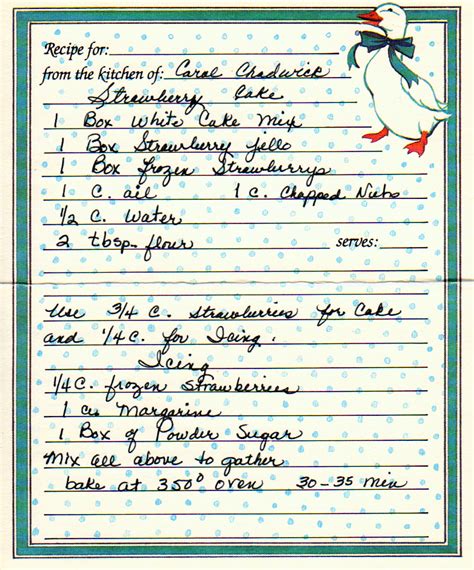 Recipe for:
from the kitchen of: Carol Chadwick
Strawberry Cake
1 Box White Cake Mix
1 Box Strawberry jello
1 Box frozen Strawburrys
1 C. oil 1 C. Chopped Nuts
1/2 C. Water
2 tbsp. flour serves:
Use 3/4 C. Strawburries for Cake
and 1/4 C. for Icing.
Icing
1/4 C. frozen Strawberries
1 c. Margarine
1 Box of Powder Sugar
Mix all above to gather
bake at 350° oven 30-35 min